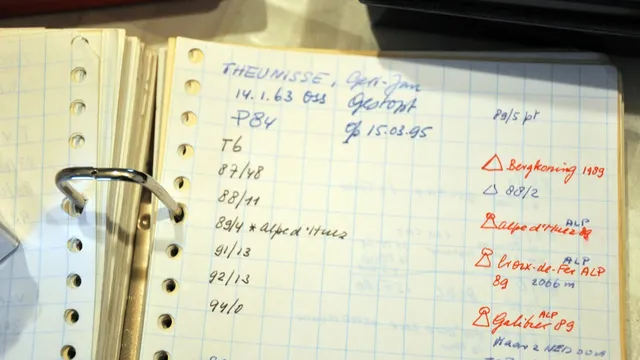 THEUNISSE, Gert-Jan
14.1.63 OSS Gestopt
P84 op 15.03.95
89/5 pt
T6
87/48
88/11
89/4 * alpe d'Huez
91/13
92/13
94/0
Bergkoning 1989
88/2
ALP
alpe d'Huez 89
Croix-de-Fer ALP
89 2066 m
ALP
Galibier 89